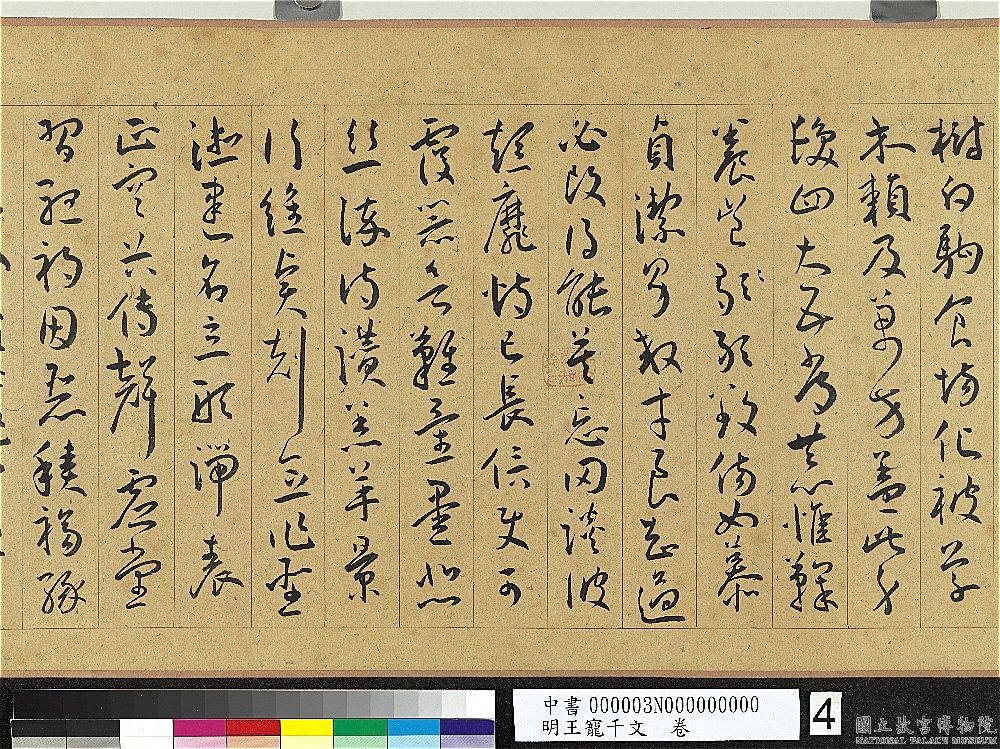 樹白駒食場化被草
木賴及萬方蓋此身
髮四大五常恭惟鞠
養豈敢毀傷女慕
貞潔男效才良知過
必改得能莫忘罔談彼
短靡恃己長信使可
覆器欲難量墨悲
絲染詩讚羔羊景
行維賢剋念作聖
德建名立形端表
正空谷傳聲虛堂
習聽禍因惡積福緣
中書 000003N000000000
明王寵千文 卷
4
國立故宮博物院
NATIONAL PALACE MUSEUM